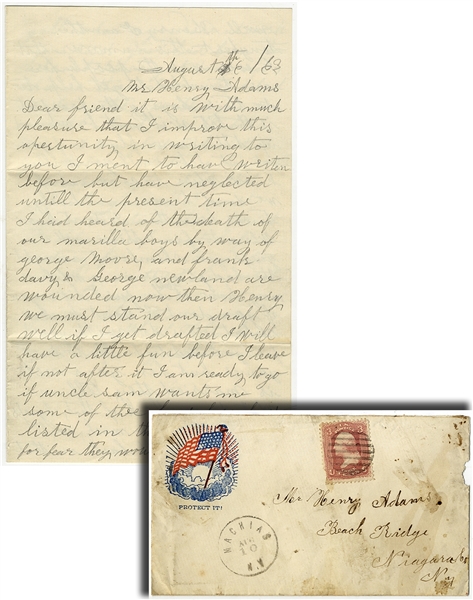 August th /63
Mr Henry Adams
Dear friend it is with much
pleasure that I improve this
opertunity in writing to
you I ment to have writen
before but have neglected
untill the present time
I had heard of the death of
our marilla boys by way of
george Moore, and frank
davy, & George newland are
wounded now then Henry
we must stand our draft
well if I get drafted I will
have a little fun before I leave
if not after it I am ready to go
if uncle sam wants me
some of the
listed in the
for fear they wou
PROTECT IT!
MACHIAS
AUG
10
N.Y.
Mr Henry Adams.
Beach Ridge
Niagara Co
N.Y